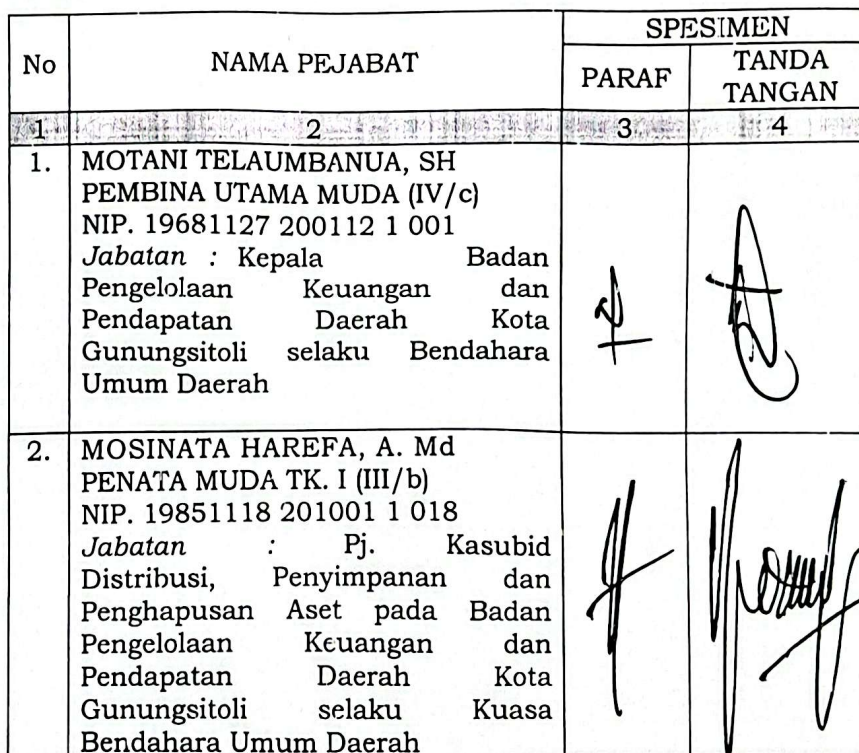 No NAMA PEJABAT SPESIMEN
PARAF TANDA TANGAN
1 2 3 4
1. MOTANI TELAUMBANUA, SH
PEMBINA UTAMA MUDA (IV/c)
NIP. 19681127 200112 1 001
Jabatan : Kepala Badan
Pengelolaan Keuangan dan
Pendapatan Daerah Kota
Gunungsitoli selaku Bendahara
Umum Daerah
2. MOSINATA HAREFA, A. Md
PENATA MUDA TK. I (III/b)
NIP. 19851118 201001 1 018
Jabatan : Pj. Kasubid
Distribusi, Penyimpanan dan
Penghapusan Aset pada Badan
Pengelolaan Keuangan dan
Pendapatan Daerah Kota
Gunungsitoli selaku Kuasa
Bendahara Umum Daerah